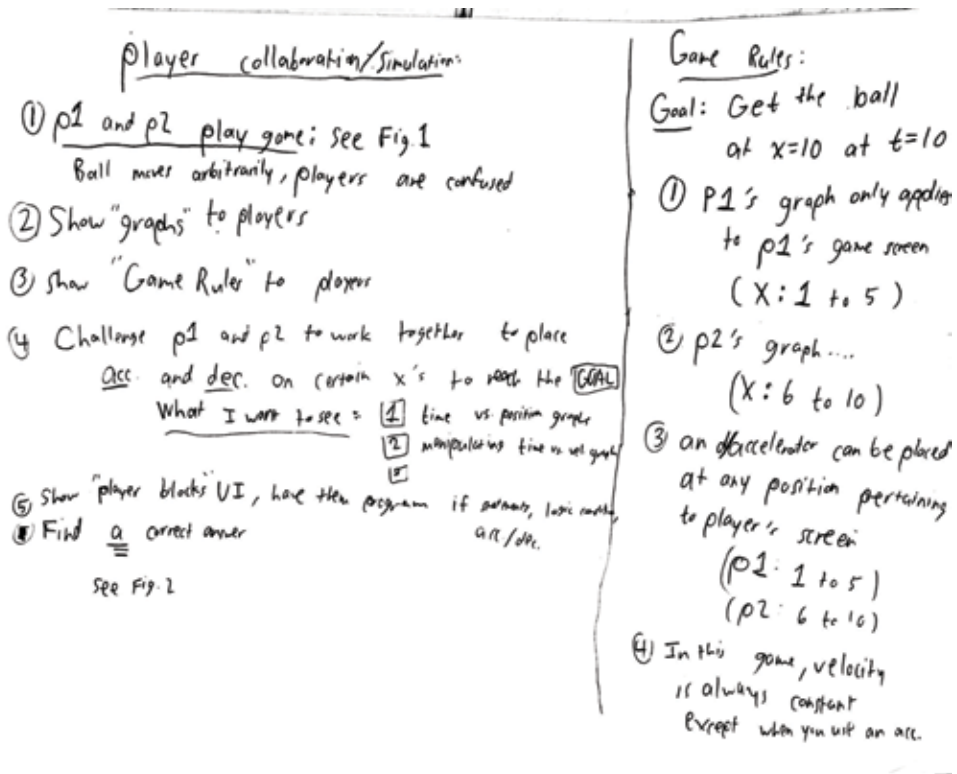 Player collaboration/Simulation:
① p1 and p2 play game: See Fig. 1
Ball moves arbitrarily, players are confused
② Show "graphs" to players
③ Show "Game Rules" to players
④ Challenge p1 and p2 to work together to place
acc. and dec. on certain x's to reach the GOAL
What I want to see: 1 time vs. position graphs
2 manipulating time vs vel graph
⑤ Show "player blocks" UI, have them program if logic
acc/dec.
Find a correct answer
See Fig. 2
Game Rules:
Goal: Get the ball
at x=10 at t=10
① P1's graph only applies
to p1's game screen
(X: 1 to 5)
② p2's graph....
(X: 6 to 10)
③ an accelerator can be placed
at any position pertaining
to player's screen
(p1: 1 to 5)
(p2: 6 to 10)
④ In this game, velocity
is always constant
except when you use an acc.